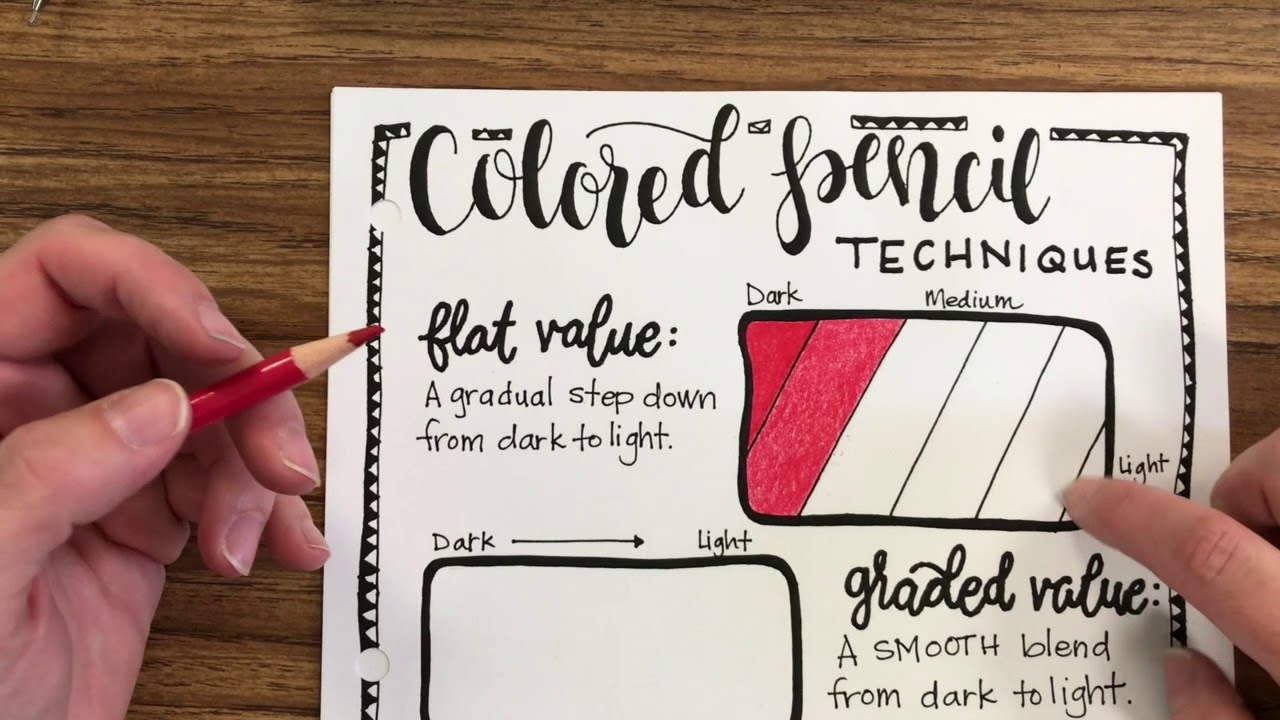 Colored pencil
TECHNIQUES
flat value:
A gradual step down
from dark to light.
Dark
Medium
Light
Dark
Light
graded value:
A SMOOTH blend
from dark to light.